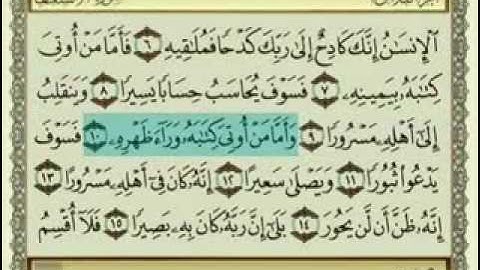 ٱلْإِنسَٰنُ إِنَّكَ كَادِحٌ إِلَىٰ رَبِّكَ كَدْحًا فَمُلَٰقِيهِ ٦ فَأَمَّا مَنْ أُوتِىَ
كِتَٰبَهُۥ بِيَمِينِهِۦ ٧ فَسَوْفَ يُحَاسَبُ حِسَابًا يَسِيرًا ٨ وَيَنقَلِبُ
إِلَىٰٓ أَهْلِهِۦ مَسْرُورًا ٩ وَأَمَّا مَنْ أُوتِىَ كِتَٰبَهُۥ وَرَآءَ ظَهْرِهِۦ ١٠ فَسَوْفَ
يَدْعُوا۟ ثُبُورًا ١١ وَيَصْلَىٰ سَعِيرًا ١٢ إِنَّهُۥ كَانَ فِىٓ أَهْلِهِۦ مَسْرُورًا ١٣
إِنَّهُۥ ظَنَّ أَن لَّن يَحُورَ ١٤ بَلَىٰٓ إِنَّ رَبَّهُۥ كَانَ بِهِۦ بَصِيرًا ١٥ فَلَآ أُقْسِمُ